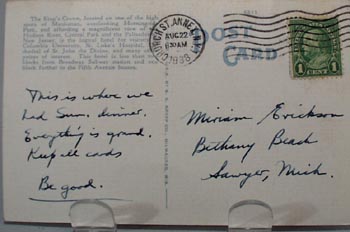 The King's Crown, located on one of the high
spots of Manhattan, overlooking Morningside
Park, and affording a magnificent view of the
Hudson River, Central Park and the Palisades of
New Jersey
Columbia University, St. Luke's Hospital,
Cathedral of St. John the Divine, and many other
points of interest. This hotel is less than two
blocks from Broadway Subway market and one
block further to the Fifth Avenue Busses.
CHURCH ST. ANNEX N.Y.
AUG 22
6 30 AM
1938
POST
CARD
1
This is where we
had Sun. dinner.
Everything is grand.
Keep all cards
Be good.
Miriam Erickson
Bethany Beach
Sawyer, Mich.